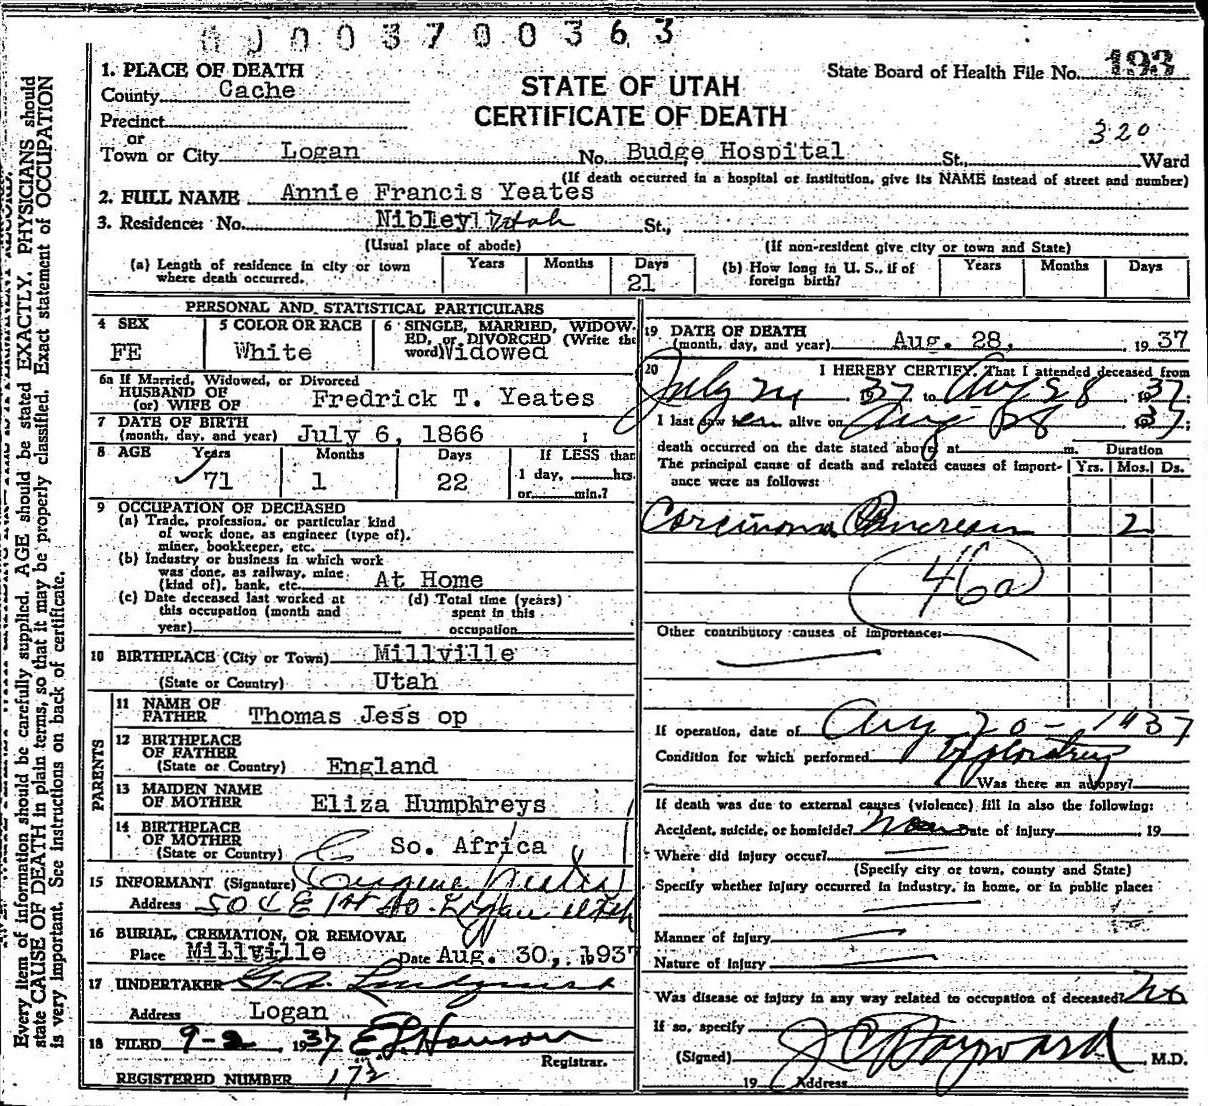 0003700363
1. PLACE OF DEATH
County Cache
STATE OF UTAH
CERTIFICATE OF DEATH
State Board of Health File No. 193
Precinct
or
Town or City Logan No. Budge Hospital St., Ward
320
(If death occurred in a hospital or institution, give its NAME instead of street and number)
2. FULL NAME Annie Francis Yeates
3. Residence: No. Nibley Utah St.,
(Usual place of abode) (If non-resident give city or town and State)
(a) Length of residence in city or town where death occurred. Years Months Days 21
(b) How long in U. S., if of foreign birth? Years Months Days
PERSONAL AND STATISTICAL PARTICULARS
4 SEX FE
5 COLOR OR RACE White
6 SINGLE, MARRIED, WIDOWED, or DIVORCED (Write the word) Widowed
6a If Married, Widowed, or Divorced
HUSBAND OF
(or) WIFE OF Fredrick T. Yeates
7 DATE OF BIRTH
(month, day, and year) July 6, 1866
8 AGE Years 71 Months 1 Days 22 If LESS than
1 day, hrs.
or min.?
9 OCCUPATION OF DECEASED
(a) Trade, profession, or particular kind
of work done, as engineer (type),
miner, bookkeeper, etc.
(b) Industry or business in which work
was done, as railway, mine
(kind of), bank, etc. At Home
(c) Date deceased last worked at
this occupation (month and
year)
(d) Total time (years)
spent in this
occupation
10 BIRTHPLACE (City or Town) Millville
(State or Country) Utah
PARENTS
11 NAME OF
FATHER Thomas Jess op
12 BIRTHPLACE
OF FATHER
(State or Country) England
13 MAIDEN NAME
OF MOTHER Eliza Humphreys
14 BIRTHPLACE
OF MOTHER
(State or Country) So. Africa
15 INFORMANT (Signature) Eugene Yeates
Address 50 E 1st So. Logan Utah
16 BURIAL, CREMATION, OR REMOVAL
Place Millville Date Aug. 30, 1937
17 UNDERTAKER G. A. Lindquist
Address Logan
18 FILED 9-2, 1937
Registrar.
REGISTERED NUMBER 172
19 DATE OF DEATH
(month, day, and year) Aug. 28, 1937
20 I HEREBY CERTIFY, That I attended deceased from
July 24 1937, to Aug 28, 1937;
I last saw her alive on Aug 28, 1937;
death occurred on the date stated above, at m. Duration
The principal cause of death and related causes of importance were as follows: Yrs. Mos. Ds.
Carcinoma Pancreas 2
46a
Other contributory causes of importance:
If operation, date of Aug 20 - 1937
Condition for which performed Exploratory
Was there an autopsy?
If death was due to external causes (violence) fill in also the following:
Accident, suicide, or homicide? None Date of injury , 19
Where did injury occur?
(Specify city or town, county and State)
Specify whether injury occurred in industry, in home, or in public place:
Manner of injury
Nature of injury
Was disease or injury in any way related to occupation of deceased? No
If so, specify
(Signed) J C Hayward M.D.
19 Address
Every item of information should be carefully supplied. AGE should be stated EXACTLY. PHYSICIANS should
state CAUSE OF DEATH in plain terms, so that it may be properly classified. Exact statement of OCCUPATION
is very important. See instructions on back of certificate.